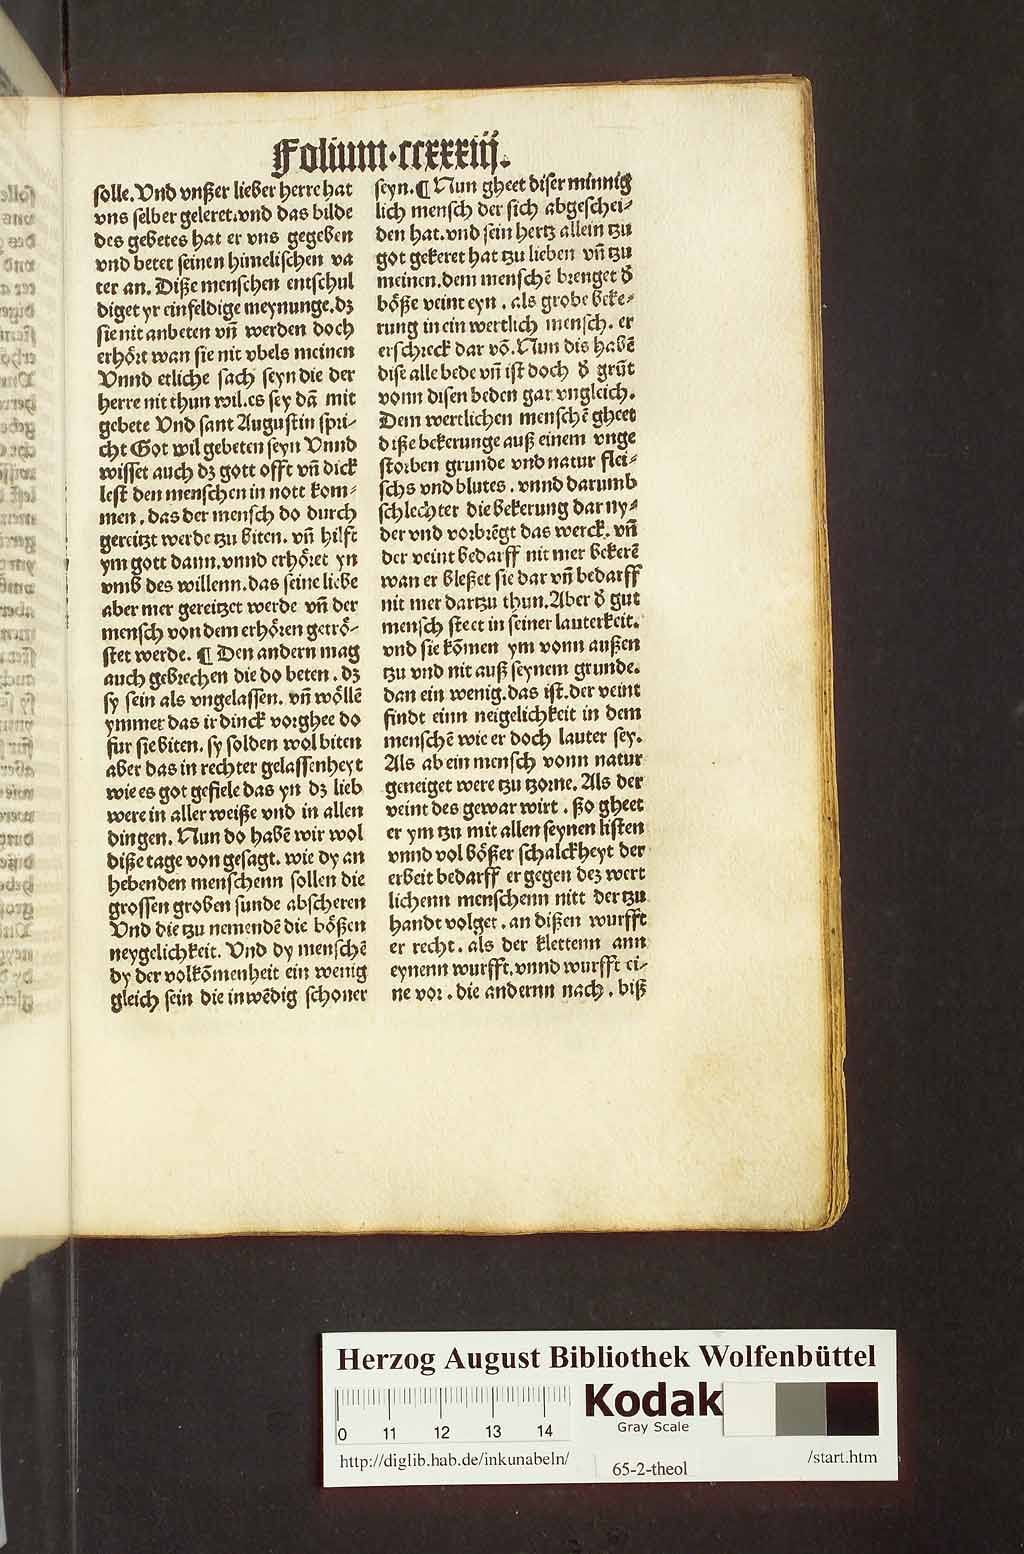 Folium·ccxxxiij.
solle. Vnd vnßer lieber herre hat
vns selber geleret. vnd das bilde
des gebetes hat er vns gegeben
vnd betet seinen himelischen va
ter an. Diße menschen entschul
diget yr einfeldige meynunge. dz
sie nit anbeten vn̄ werden doch
erhört wan sie nit vbels meinen
Vnnd etliche sach seyn die der
herre nit thun wil. es sey dā mit
gebete Vnd sant Augustin spri⸗
cht Got wil gebeten seyn Vnnd
wisset auch dz gott offt vn̄ dick
lest den menschen in nott kom⸗
men. das der mensch do durch
gereitzt werde tzu biten. vn̄ hilft
ym gott dann. vnnd erhöret yn
vmb des willenn. das seine liebe
aber mer gereitzet werde vn̄ der
mensch von dem erhören getrö⸗
stet werde. ¶ Den andern mag
auch gebrechen die do beten. dz
sy sein als vngelassen. vn̄ wöllē
ymmer das ir dinck vorghee do
fur sie biten. sy solden wol biten
aber das in rechter gelassenheyt
wie es got gefiele das yn dz lieb
were in aller weiße vnd in allen
dingen. Nun do habē wir wol
diße tage von gesagt. wie dy an
hebenden menschenn sollen die
grossen groben sunde abscheren
Vnd die tzu nemendē die bößen
neygelichkeit. Vnd dy menschē
dy der volkōmenheit ein wenig
gleich sein die inwēdig schoner
seyn. ¶ Nun gheet diser minnig
lich mensch der sich abgeschei⸗
den hat. vnd sein hertz allein tzu
got gekeret hat tzu lieben vn̄ tzu
meinen. dem menschē brenget d̕
böße veint eyn. als grobe beke⸗
rung in ein wertlich mensch. er
erschreck dar vō. Nun dis habē
dise alle bede vn̄ ist doch d̕ grūt
vonn disen beden gar vngleich.
Dem wertlichen menschē gheet
diße bekerunge auß einem vnge
storben grunde vnd natur flei⸗
schs vnd blutes. vnnd darumb
schlechter die bekerung dar ny⸗
der vnd vorbrēgt das werck. vn̄
der veint bedarff nit mer bekerē
wan er bleßet sie dar vn̄ bedarff
nit mer dartzu thun. Aber d̕ gut
mensch steet in seiner lauterkeit.
vnd sie kōmen ym vonn außen
tzu vnd nit auß seynem grunde.
dan ein wenig. das ist. der veint
findt einn neigelichkeit in dem
menschē wie er doch lauter sey.
Als ab ein mensch vonn natur
geneiget were tzu tzorne. Als der
veint des gewar wirt. ßo gheet
er ym tzu mit allen seynen listen
vnnd vol bößer schalckheyt der
erbeit bedarff er gegen dez wert
lichenn menschenn nitt der tzu
handt volget. an dißen wurfft
er recht. als der klettenn ann
eynenn wurfft. vnnd wurfft ei⸗
ne vor. die andernn nach. biß
Herzog August Bibliothek Wolfenbüttel
0 11 12 13 14
Kodak
Gray Scale
http://diglib.hab.de/inkunabeln/
65-2-theol
/start.htm